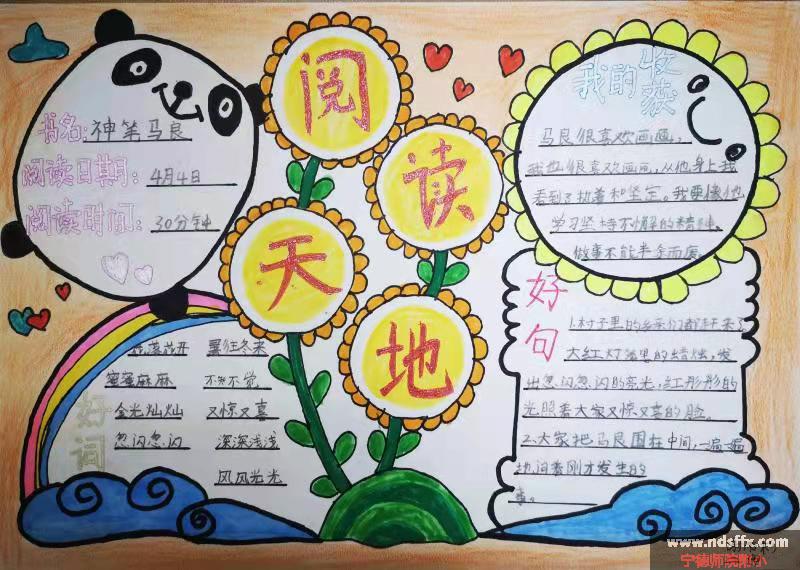 阅读天地
书名: 神笔马良
阅读日期: 4月4日
阅读时间: 30分钟
好词
花落花开 暑往冬来
蜜蜜麻麻 不知不觉
金光灿灿 又惊又喜
忽闪忽闪 深深浅浅
风风光光
我的收获
马良很喜欢画画,
我也很喜欢画画,从他身上我
看到了执着和坚定。我要像他
学习坚持不懈的精神,
做事不能半途而废。
好句
1.村子里的乡亲们都赶来了
大红灯笼里的蜡烛,发
出忽闪忽闪的亮光,红彤彤的
光照着大家又惊又喜的脸。
2.大家把马良围在中间,一遍一遍
地问着刚才发生的
事。
www.ndsffx.com
宁德师院附小